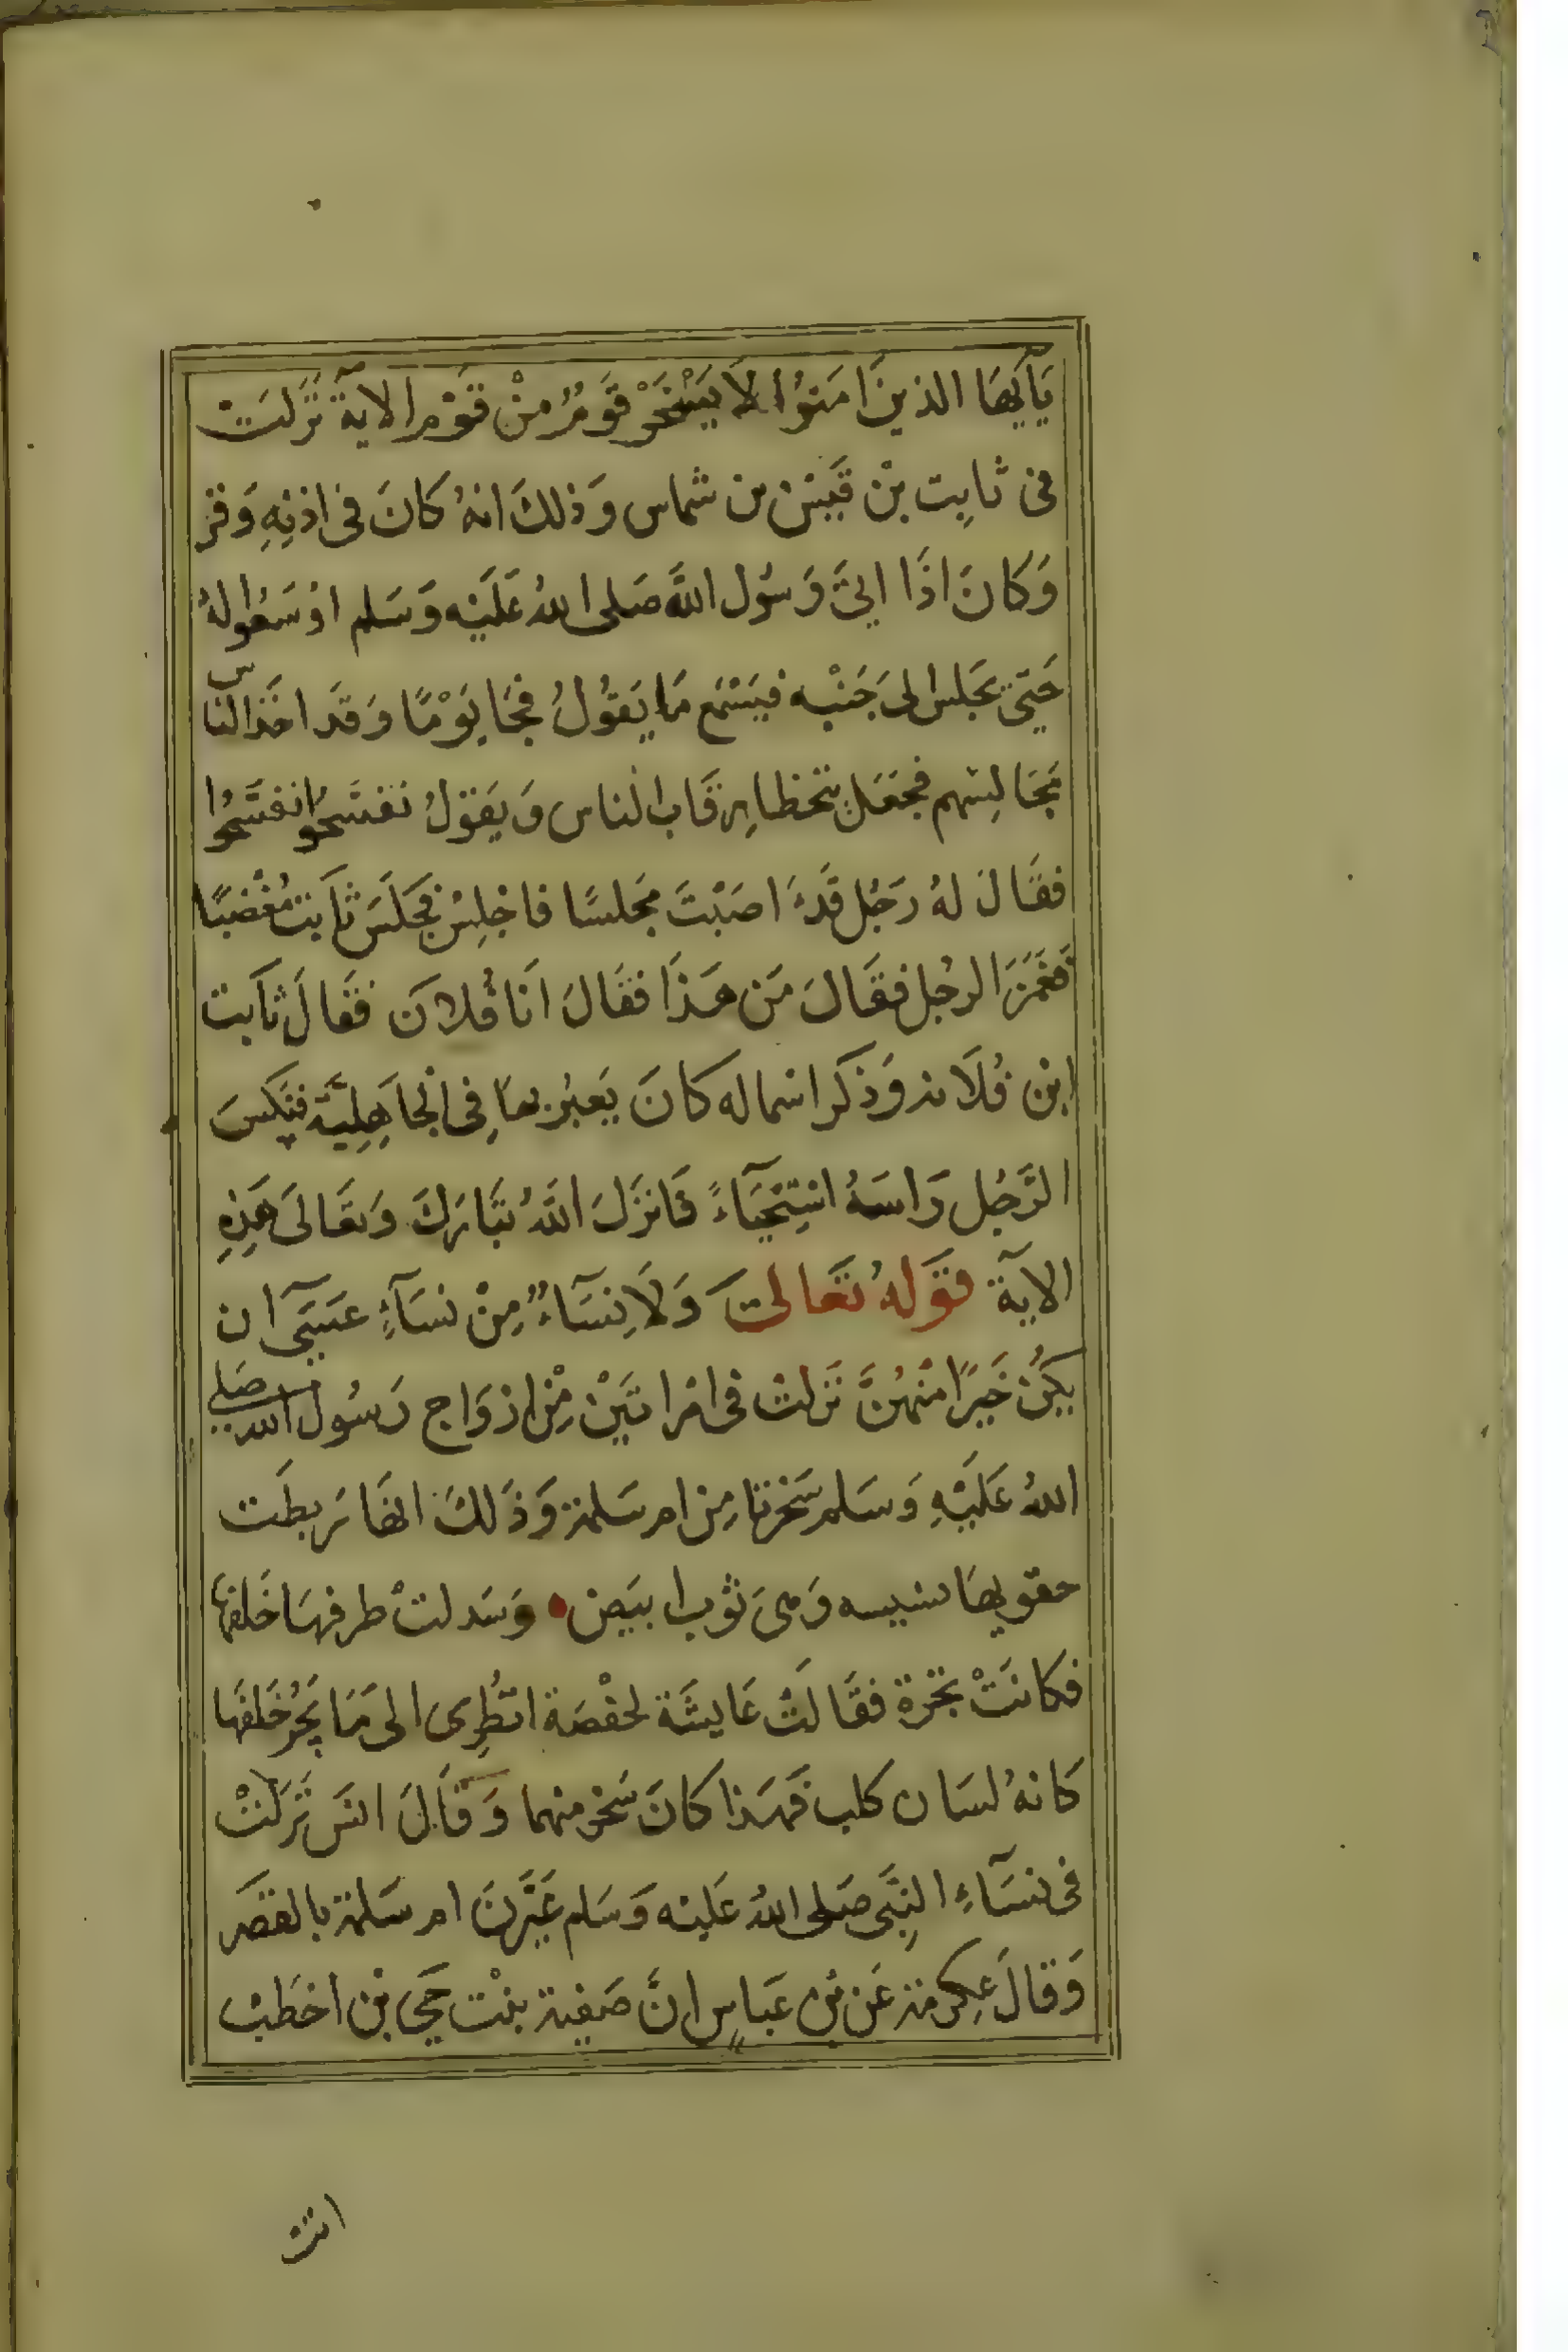 يَآيهَا الذينَ امَنوُا لَا يَسْخَرْ قَومٌ مِنْ قَوْم الاية نَزَلَتْ
فى ثابت بْن قَيْس بن شماس وَذلكَ انهُ كَانَ فى اذنِهِ وَقر
وَكانَ اذَا اتىَ رَسُول اللَّه صَلى اللهُ عَلَيْه وَسَلم اوْسَعُوا لهُ
حَتى يجَلس الىَ جَنْبه فيَسْمَع مَا يَقُولُ فجَا يَوْمًا وَقَد اخَذ الناس
مَجَالِسَهم فجَعَل يتخطا رقَاب الناس وَيَقوْلُ تفَسَّحُوا تفَسَّحُوا
فقَالَ لهُ رَجُل قَدْ اصَبْتَ مجَلسًا فاجْلِسْ فجَلَسَ ثاَبت مُغْضبًا
فَغَمَزَ الرجُل فقَالَ مَن هَذَا فقَالَ انَا فُلان فقَالَ ثاَبت
ابْن فُلَانه وَذكَر اسْما له كانَ يَعَيرُ بهَا فِى الْجاَهِليَّة فنَكسَ
الرَّجُل رَاسَهُ اسْتِحْيَآءً فَانزَلَ اللَّهُ تبَارَكَ وَتعَالىَ هَذِهِ
الآية قَوَلهُ تعَالىَ وَلَا نِسَآءٌ مِنْ نسَآءٍ عَسَىَ ان
يكُنَّ خَيرًا منْهُنَّ نزلتْ فى امْراتَيْن مِنْ ازوَاج رَسُول الله صَلى
اللهُ عَلَيْهِ وَسَلم سَخرتا مِن ام سَلمة وَذَلكَ انهَا رَبطَت
حقويهَا بسبيبه وَهىَ ثوْب ابيَض وَسَدلتْ طرفهَا خَلفهَا
فكانَتْ تجرة فقَالَتْ عَايشَة لحفْصَة انظُرِى الى مَا تجَرُ خَلفَها
كَانهُ لسَان كلب فَهَذا كانَ سَخر منهما وَقَالَ انسَ نَزَلتْ
فى نسَآءِ النبَّى صَلى اللهُ عَليْه وَسَلم عَيَّرنَ ام سَلمة بالقصَر
وَقالَ عِكرمَة عَن بْن عَباسٍ انَّ صَفية بنْت حُيَى بْن اخطَبْ
اتت